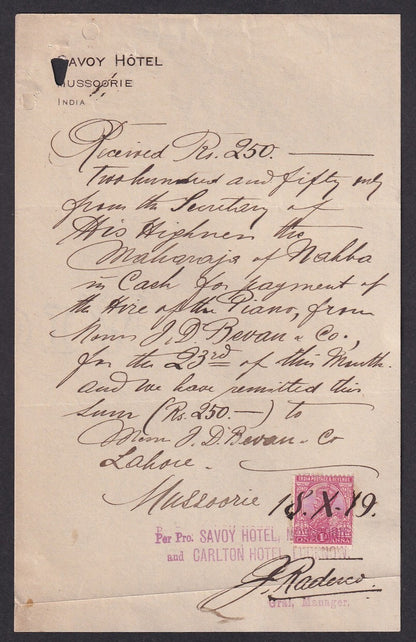 SAVOY HÔTEL
MUSSOORIE
INDIA
Received Rs. 250. —
two hundred and fifty only
from the Secretary of
His Highness the
Maharaja of Nabha
in Cash for payment of
the Hire of the Piano, from
Messrs J. D. Bevan & Co,
for the 23rd of this Month.
and we have remitted this
sum (Rs. 250. —) to
Messrs J. D. Bevan & Co
Lahore.
Mussoorie 18. X. 19.
INDIA POSTAGE & REVENUE
ANNA
Per Pro. SAVOY HÔTEL,
and CARLTON HOTEL
Manager.